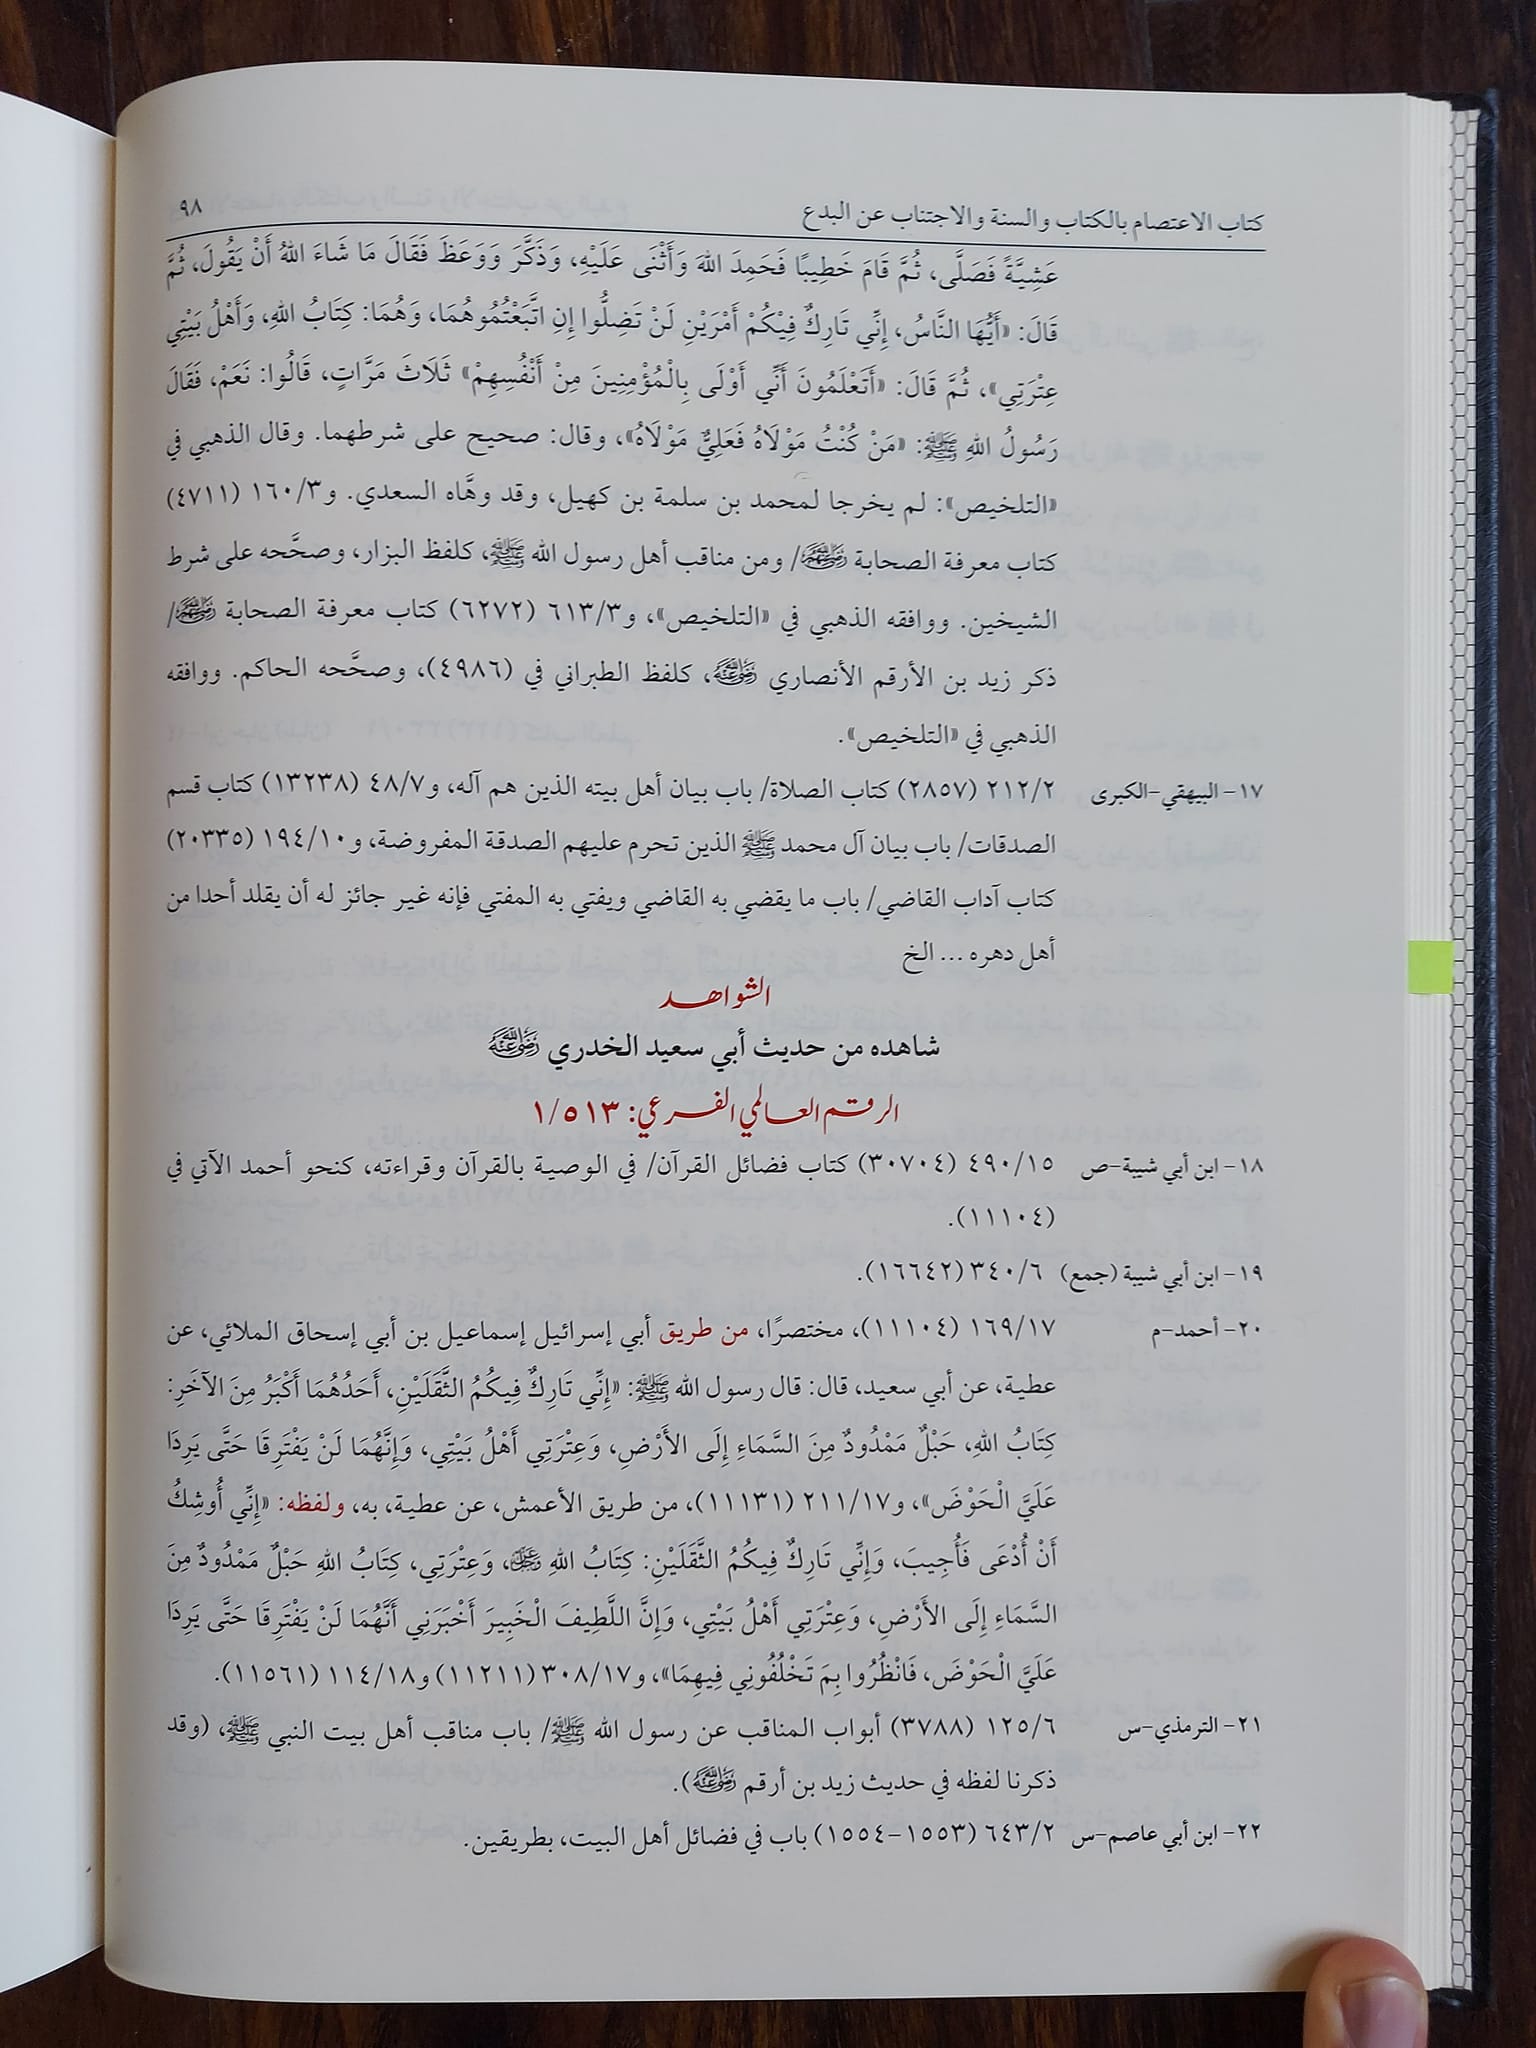 كتاب الاعتصام بالكتاب والسنة والاجتناب عن البدع ٩٨
عَشِيَّةً فَصَلَّى، ثُمَّ قَامَ خَطِيبًا فَحَمِدَ اللهَ وَأَثْنَى عَلَيْهِ، وَذَكَّرَ وَوَعَظَ فَقَالَ مَا شَاءَ اللهُ أَنْ يَقُولَ، ثُمَّ
قَالَ: «أَيُّهَا النَّاسُ، إِنِّي تَارِكٌ فِيكُمْ أَمْرَيْنِ لَنْ تَضِلُّوا إِنِ اتَّبَعْتُمُوهُمَا، وَهُمَا: كِتَابُ اللهِ، وَأَهْلُ بَيْتِي
عِتْرَتِي»، ثُمَّ قَالَ: «أَتَعْلَمُونَ أَنِّي أَوْلَى بِالْمُؤْمِنِينَ مِنْ أَنْفُسِهِمْ» ثَلَاثَ مَرَّاتٍ، قَالُوا: نَعَمْ، فَقَالَ
رَسُولُ اللهِ ﷺ: «مَنْ كُنْتُ مَوْلَاهُ فَعَلِيٌّ مَوْلَاهُ»، وقال: صحيح على شرطهما. وقال الذهبي في
«التلخيص»: لم يخرجا لمحمد بن سلمة بن كهيل، وقد وهَّاه السعدي. و٣/‏١٦٠ (٤٧١١)
كتاب معرفة الصحابة رضي الله عنهم/ ومن مناقب أهل رسول الله ﷺ، كلفظ البزار، وصحَّحه على شرط
الشيخين. ووافقه الذهبي في «التلخيص»، و٣/‏٦١٣ (٦٢٧٢) كتاب معرفة الصحابة رضي الله عنهم/
ذكر زيد بن الأرقم الأنصاري رضي الله عنه، كلفظ الطبراني في (٤٩٨٦)، وصحَّحه الحاكم. ووافقه
الذهبي في «التلخيص».
١٧- البيهقي-الكبرى ٢/‏٢١٢ (٢٨٥٧) كتاب الصلاة/ باب بيان أهل بيته الذين هم آله، و٧/‏٤٨ (١٣٢٣٨) كتاب قسم
الصدقات/ باب بيان آل محمد ﷺ الذين تحرم عليهم الصدقة المفروضة، و١٠/‏١٩٤ (٢٠٣٣٥)
كتاب آداب القاضي/ باب ما يقضي به القاضي ويفتي به المفتي فإنه غير جائز له أن يقلد أحدا من
أهل دهره ... الخ
الشواهد
شاهده من حديث أبي سعيد الخدري رضي الله عنه
الرقم العالمي الفرعي: ٥١٣/‏١
١٨- ابن أبي شيبة-ص ١٥/‏٤٩٠ (٣٠٧٠٤) كتاب فضائل القرآن/ في الوصية بالقرآن وقراءته، كنحو أحمد الآتي في
(١١١٠٤).
١٩- ابن أبي شيبة (جمع) ٦/‏٣٤٠ (١٦٦٤٢).
٢٠- أحمد-م ١٧/‏١٦٩ (١١١٠٤)، مختصرًا، من طريق أبي إسرائيل إسماعيل بن أبي إسحاق الملائي، عن
عطية، عن أبي سعيد، قال: قال رسول الله ﷺ: «إِنِّي تَارِكٌ فِيكُمُ الثَّقَلَيْنِ، أَحَدُهُمَا أَكْبَرُ مِنَ الآخَرِ:
كِتَابُ اللهِ، حَبْلٌ مَمْدُودٌ مِنَ السَّمَاءِ إِلَى الأَرْضِ، وَعِتْرَتِي أَهْلُ بَيْتِي، وَإِنَّهُمَا لَنْ يَفْتَرِقَا حَتَّى يَرِدَا
عَلَيَّ الْحَوْضَ»، و١٧/‏٢١١ (١١١٣١)، من طريق الأعمش، عن عطية، به، ولفظه: «إِنِّي أُوشِكُ
أَنْ أُدْعَى فَأُجِيبَ، وَإِنِّي تَارِكٌ فِيكُمُ الثَّقَلَيْنِ: كِتَابُ اللهِ عز وجل، وَعِتْرَتِي، كِتَابُ اللهِ حَبْلٌ مَمْدُودٌ مِنَ
السَّمَاءِ إِلَى الأَرْضِ، وَعِتْرَتِي أَهْلُ بَيْتِي، وَإِنَّ اللَّطِيفَ الْخَبِيرَ أَخْبَرَنِي أَنَّهُمَا لَنْ يَفْتَرِقَا حَتَّى يَرِدَا
عَلَيَّ الْحَوْضَ، فَانْظُرُوا بِمَ تَخْلُفُونِي فِيهِمَا»، و١٧/‏٣٠٨ (١١٢١١) و١٨/‏١١٤ (١١٥٦١).
٢١- الترمذي-س ٦/‏١٢٥ (٣٧٨٨) أبواب المناقب عن رسول الله ﷺ/ باب مناقب أهل بيت النبي ﷺ، (وقد
ذكرنا لفظه في حديث زيد بن أرقم رضي الله عنه).
٢٢- ابن أبي عاصم-س ٢/‏٦٤٣ (١٥٥٣-١٥٥٤) باب في فضائل أهل البيت، بطريقين.